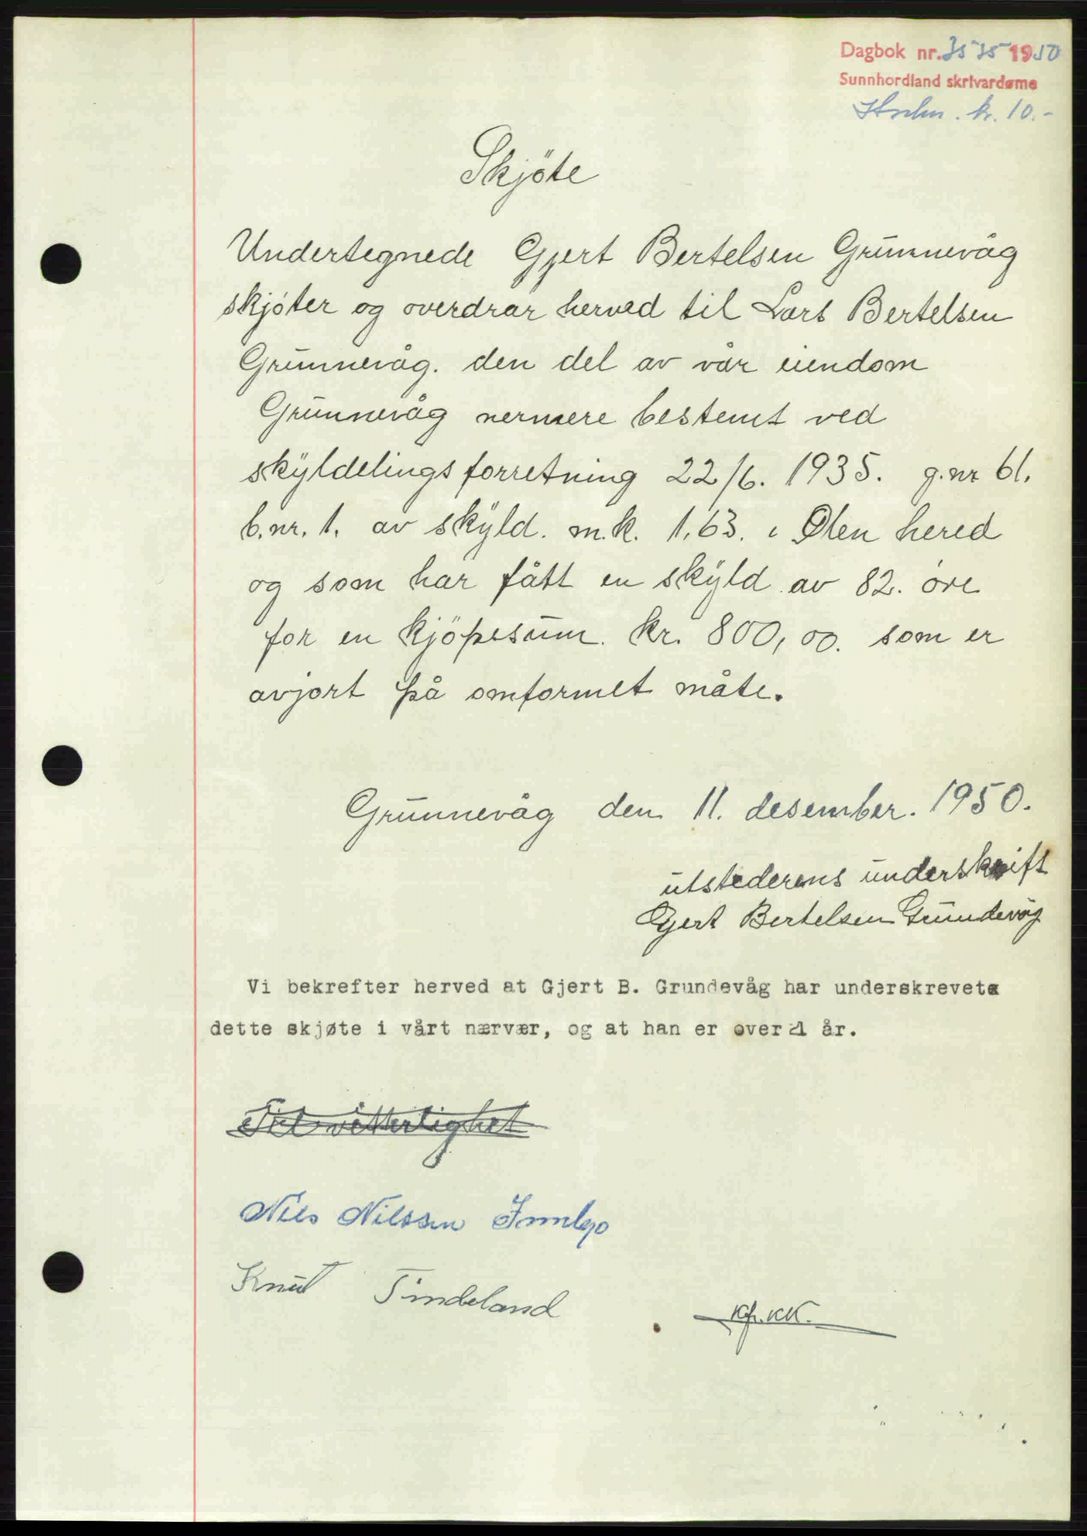 Dagbok nr. 3575 1950
Sunnhordland skrivardøme
kr. 10.-
Skjöte
Undertegnede Gjert Bertelsen Grunnevåg
skjöter og overdrar herved til Lars Bertelsen
Grunnevåg. den del av vår eiendom
Grunnevåg nermere bestemt ved
skyldelingsforretning 22/6. 1935. g.nr 61.
b.nr. 1. av skyld. m.k. 1,63. i Ølen hered
og som har fått en skyld av 82. öre
for en kjöpesum. kr. 800,00. som er
avjort på omformet måte.
Grunnevåg den 11. desember. 1950.
utstederens underskrift
Gjert Bertelsen Grundevåg
Vi bekrefter herved at Gjert B. Grundevåg har underskrevet
dette skjøte i vårt nærvær, og at han er over 21 år.
Til vitterlighet
Nils Nilssen Innbjo
Knut Tindeland
Kfr. KK.